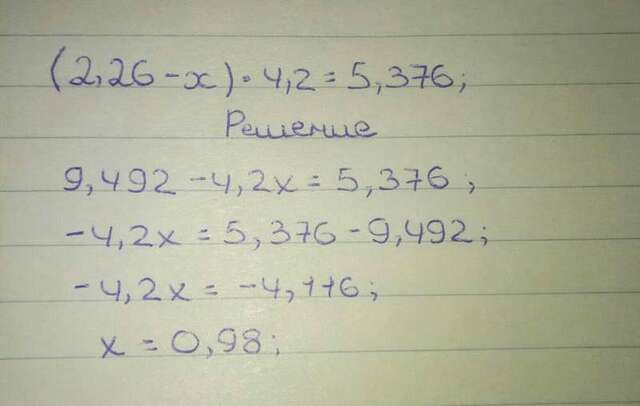 (2,26 - x) · 4,2 = 5,376;
Решение
9,492 - 4,2x = 5,376;
-4,2x = 5,376 - 9,492;
-4,2x = -4,116;
x = 0,98;